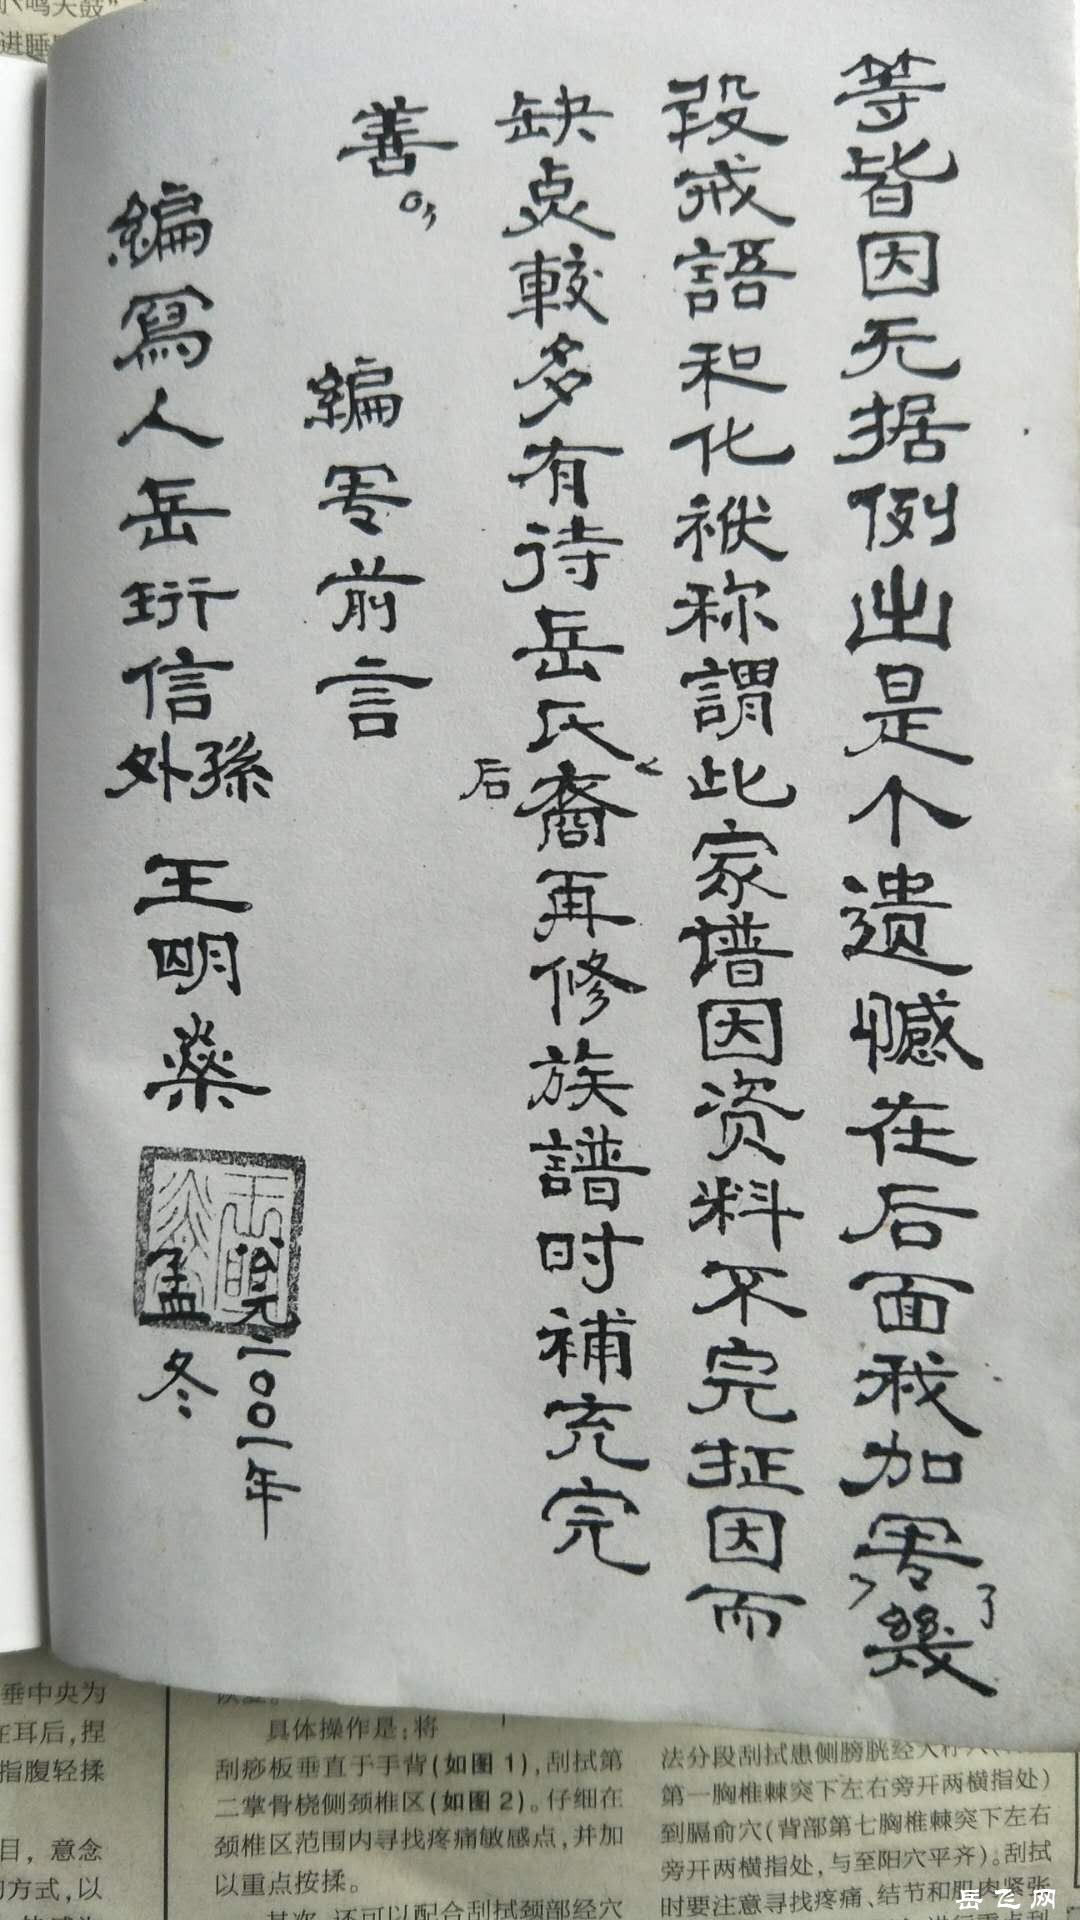 等皆因无据例出是个遗憾在后面我加写了幾
段戒語和化袱称謂此家谱因资料不完因而
缺点較多有待岳氏后裔再修族譜时補充完
善。
編写前言
編寫人岳珩信外孫王明燊
公元二00一年
孟冬
鸣天鼓”
进睡
垂中央为
在耳后，捏
指腹轻揉
目，意念
方式，以
具体操作是：将
刮痧板垂直于手背(如图1)，刮拭第
二掌骨桡侧颈椎区(如图2)。仔细在
颈椎区范围内寻找疼痛敏感点，并加
以重点按揉。
其次，还可以配合刮拭颈部经穴
法分段刮拭患侧膀胱经大杼穴
第一胸椎棘突下左右旁开两横指处)
到膈俞穴(背部第七胸椎棘突下左右
旁开两横指处，与至阳穴平齐)。刮拭
时要注意寻找疼痛、结节和肌肉紧张
岳飞网